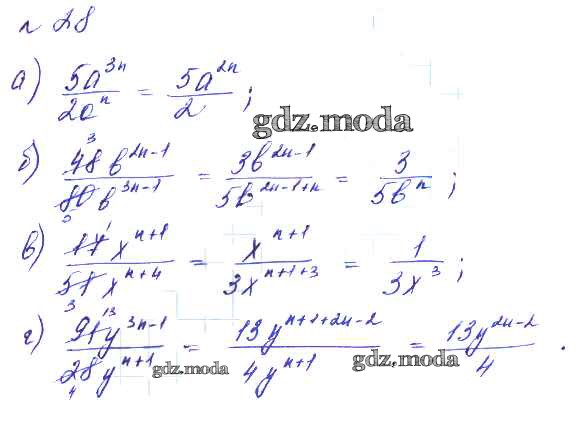 № 28
а) 5a^{3n} / 2a^n = 5a^{2n} / 2 ;
gdz.moda
б) 48b^{2n-1} / 80b^{3n-1} = 3b^{2n-1} / 5b^{2n-1+n} = 3 / 5b^n ;
в) 17x^{n+1} / 51x^{n+4} = x^{n+1} / 3x^{n+1+3} = 1 / 3x^3 ;
г) 91y^{3n-1} / 28y^{n+1} = 13y^{n+1+2n-2} / 4y^{n+1} = 13y^{2n-2} / 4 .
gdz.moda gdz.moda